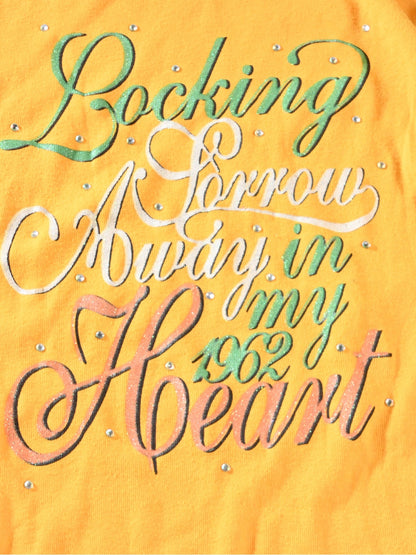 Locking
Sorrow
Away in
my
1962
Heart